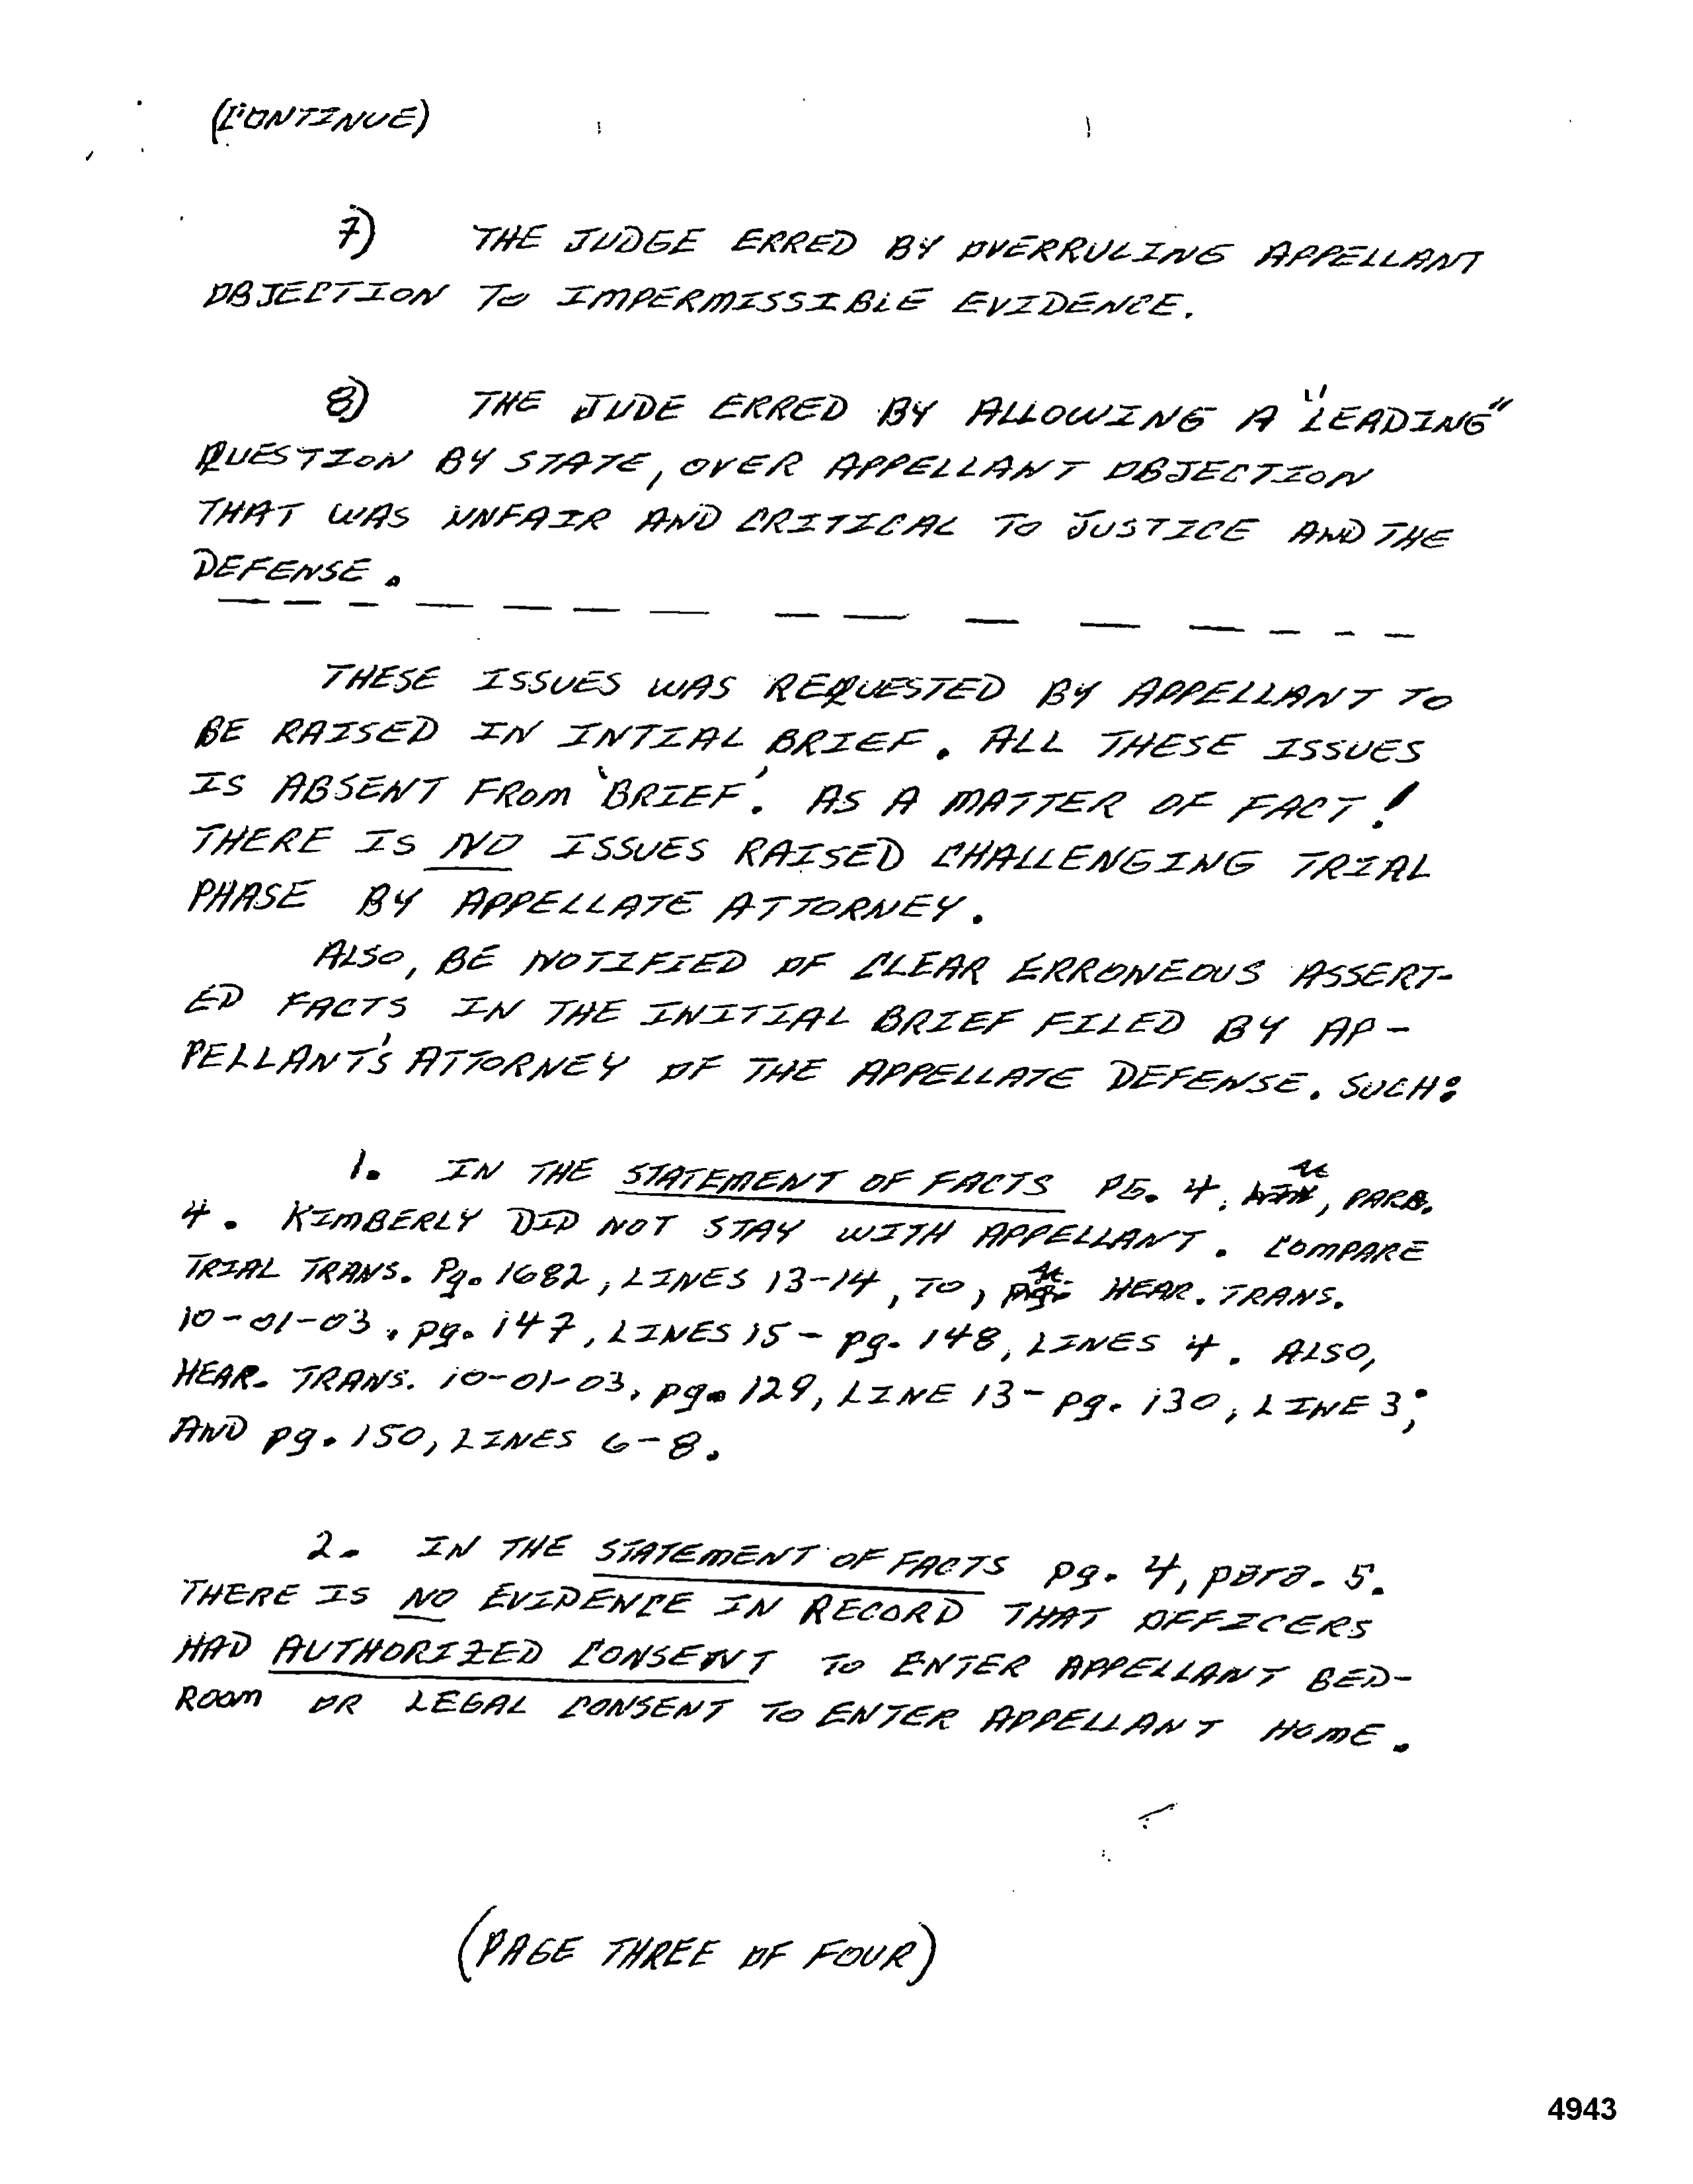 (CONTINUE)
7) THE JUDGE ERRED BY OVERRULING APPELLANT
OBJECTION TO IMPERMISSIBLE EVIDENCE.
8) THE JUDE ERRED BY ALLOWING A "LEADING"
QUESTION BY STATE, OVER APPELLANT OBJECTION
THAT WAS UNFAIR AND CRITICAL TO JUSTICE AND THE
DEFENSE.
THESE ISSUES WAS REQUESTED BY APPELLANT TO
BE RAISED IN INTIAL BRIEF. ALL THESE ISSUES
IS ABSENT FROM 'BRIEF'. AS A MATTER OF FACT!
THERE IS NO ISSUES RAISED CHALLENGING TRIAL
PHASE BY APPELLATE ATTORNEY.
ALSO, BE NOTIFIED OF CLEAR ERRONEOUS ASSERT-
ED FACTS IN THE INITIAL BRIEF FILED BY AP-
PELLANT'S ATTORNEY OF THE APPELLATE DEFENSE. SUCH:
1. IN THE STATEMENT OF FACTS PG. 4, PARA.
4. KIMBERLY DID NOT STAY WITH APPELLANT. COMPARE
TRIAL TRANS. Pg. 1682, LINES 13-14, TO, HEAR. TRANS.
10-01-03, pg. 147, LINES 15 - pg. 148, LINES 4. ALSO,
HEAR. TRANS. 10-01-03, pg. 129, LINE 13 - pg. 130, LINE 3;
AND pg. 150, LINES 6-8.
2. IN THE STATEMENT OF FACTS pg. 4, para. 5.
THERE IS NO EVIDENCE IN RECORD THAT OFFICERS
HAD AUTHORIZED CONSENT TO ENTER APPELLANT BED-
ROOM OR LEGAL CONSENT TO ENTER APPELLANT HOME.
(PAGE THREE OF FOUR)
4943